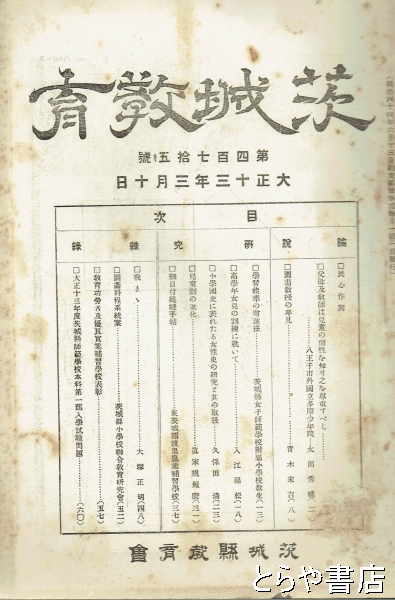 茨城敎育
第四百七拾五號
大正十三年三月十日
目次
論說
□民心作興
□父母及敎師は兒童の個性を知り之を尊重すべし
八王子市外國立多摩少年院 太田秀穗(二)
□圖畫敎授の卑見 青木末吉(八)
硏究
□學習能率の增進法 茨城縣女子師範學校附屬小學校敎生(一三)
□高學年女兒の訓練に就いて 入江福松(一八)
□小學國史に表れたる女性史の硏究と其の取扱 久保田淸(二三)
□兒童劇の進化 眞家親慶(三一)
□細目付裁縫手帖 東茨城郡渡里農業補習學校(三七)
雜錄
大塚正明(四八)
□圖畫科程系統案 茨城縣小學校聯合敎育硏究會(五二)
□敎育功勞者及優良實業補習學校表彰(五七)
□大正十三年度茨城縣師範學校本科第一部入學試驗問題(六〇)
茨城縣敎育會
とらや書店